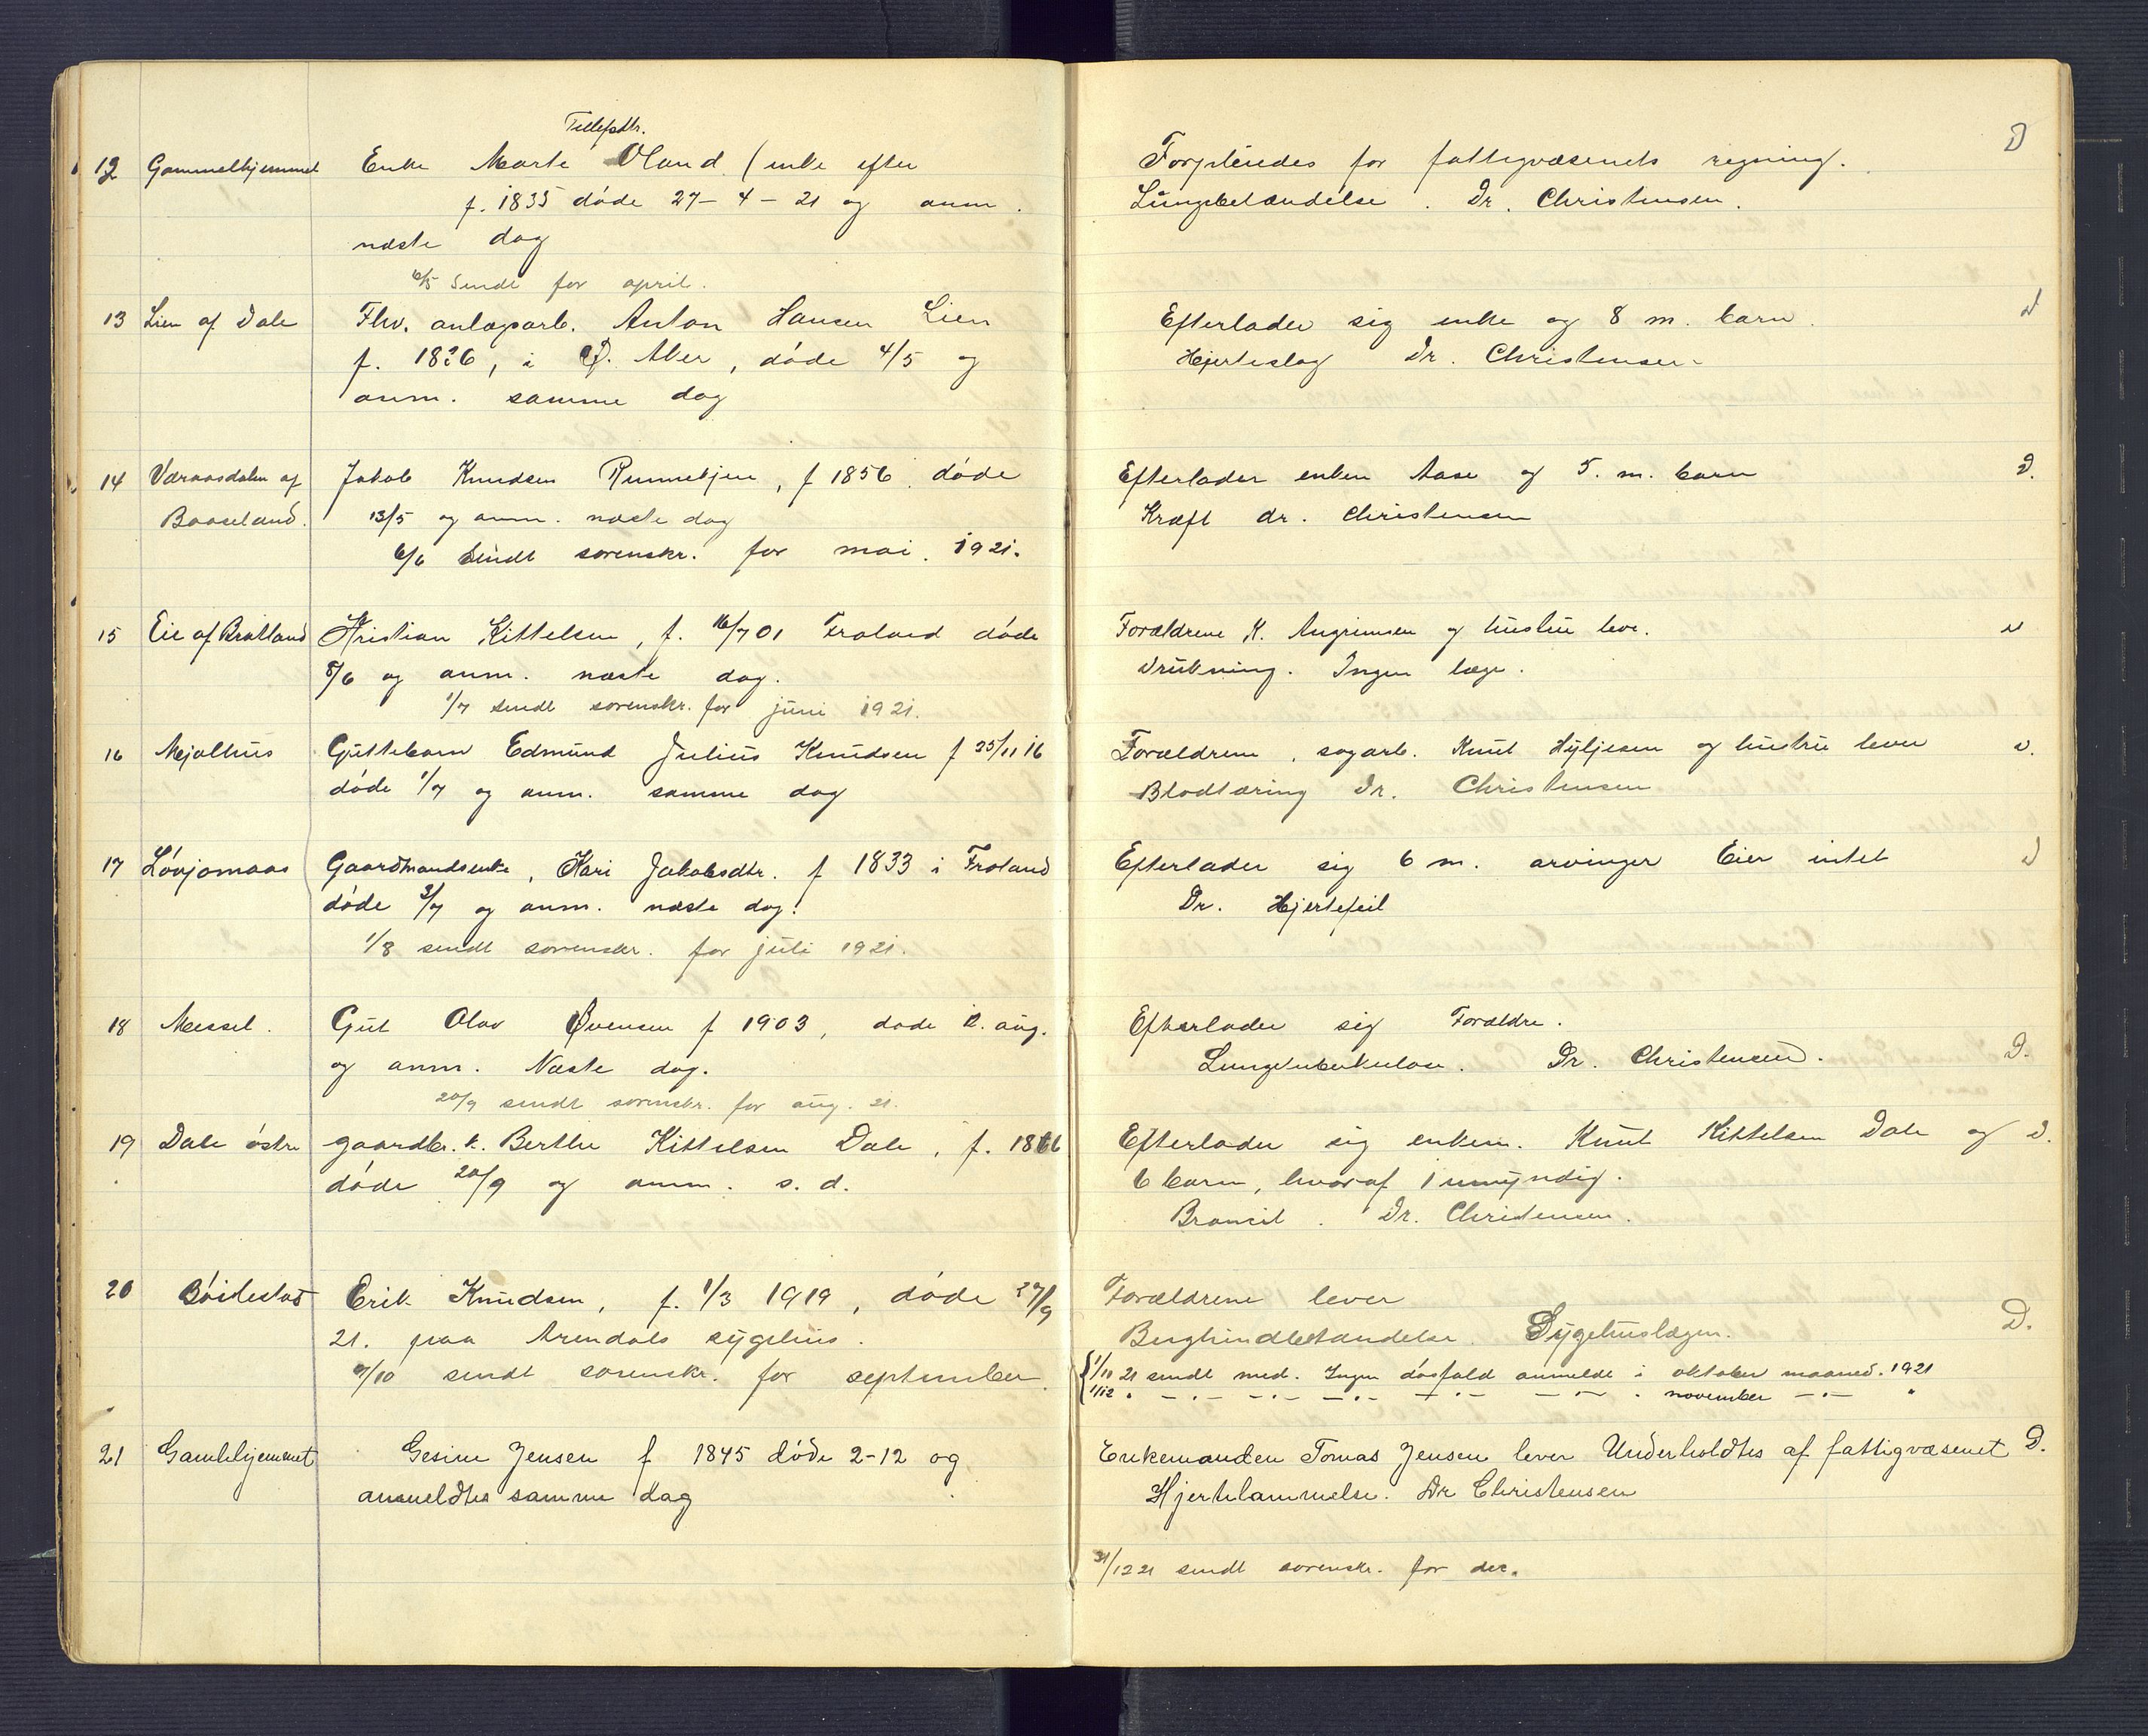 Tellefsdtr.
12 Gammelhjemmet Enke Marte Oland (enke efter
f. 1835 døde 27-4-21 og anm.
næste dag
6/5 Sendt for april.
13 Lien af Dale Fhv. anlægsarb. Anton Hansen Lien
f. 1826, i Ø. Aker, døde 4/5 og
anm. samme dag
14 Væraasdalen af Jakob Knudsen f 1856 døde
Baaseland. 13/5 og anm. næste dag
6/6 Sendt sorenskr. for mai. 1921.
15 Eie af Bratland Kristian Kittelsen, f. 16/7 01 Froland døde
8/6 og anm. næste dag.
1/7 sendt sorenskr. for juni 1921.
16 Mjølhus Guttebarn Edmund Julius Knudsen f 25/11 16
døde 1/7 og anm. samme dag
17 Løvjomaas Gaardmandsenke, Kari Jakobsdtr. f 1833 i Froland
døde 3/7 og anm. næste dag.
1/8 sendt sorenskr. for juli 1921.
18 Messel. Gut Olav Øvensen f 1903, døde 12. aug.
og anm. Næste dag.
20/9 sendt sorenskr. for aug. 21.
19 Dale østre gaardbr. k. Berthe Kittelsen Dale, f. 1866
døde 20/9 og anm. s. d.
20 Bøilestad Erik Knudsen, f. 1/3 1919, døde 27/9
21. paa Arendals sygehus.
7/10 sendt sorenskr. for september.
21 Gamlehjemmet Gesine Jensen f 1845 døde 2-12 og
anmeldtes samme dag
Forpleiedes for fattigvæsenets regning. D
Lungebetændelse. Dr. Christensen.
Efterlader sig enke og 8 m. barn. D
Hjerteslag Dr. Christensen
Efterlader enken Aase og 5. m. barn D.
Kræft dr. Christensen
Forældrene K. Angrimsen og hustru leve. D
Drukning. Ingen læge.
Forældrene, sagarb. Knut og hustru lever D.
Blodtæring Dr. Christensen
Efterlader sig 6 m. arvinger Eier intet D
Dr. Hjertefeil
Efterlader sig Forældre.
Lungetuberkulose. Dr. Christensen. D.
Efterlader sig enkem. Knut Kittelsen Dale og D.
6 barn, hvoraf 1 umyndig.
Dr. Christensen.
Forældrene lever
Betændelse. Sygehuslægen. D.
1/11 21 sendt med. Ingen døsfald anmeldt i oktober maaned. 1921
1/12 " -"- -"- -"- -"- -"- " november -"- "
Enkemanden Tomas Jensen lever Underholdtes af fattigvæsenet D.
Hjertelammelse. Dr Christensen
31/12 21 sendt sorenskr. for des.